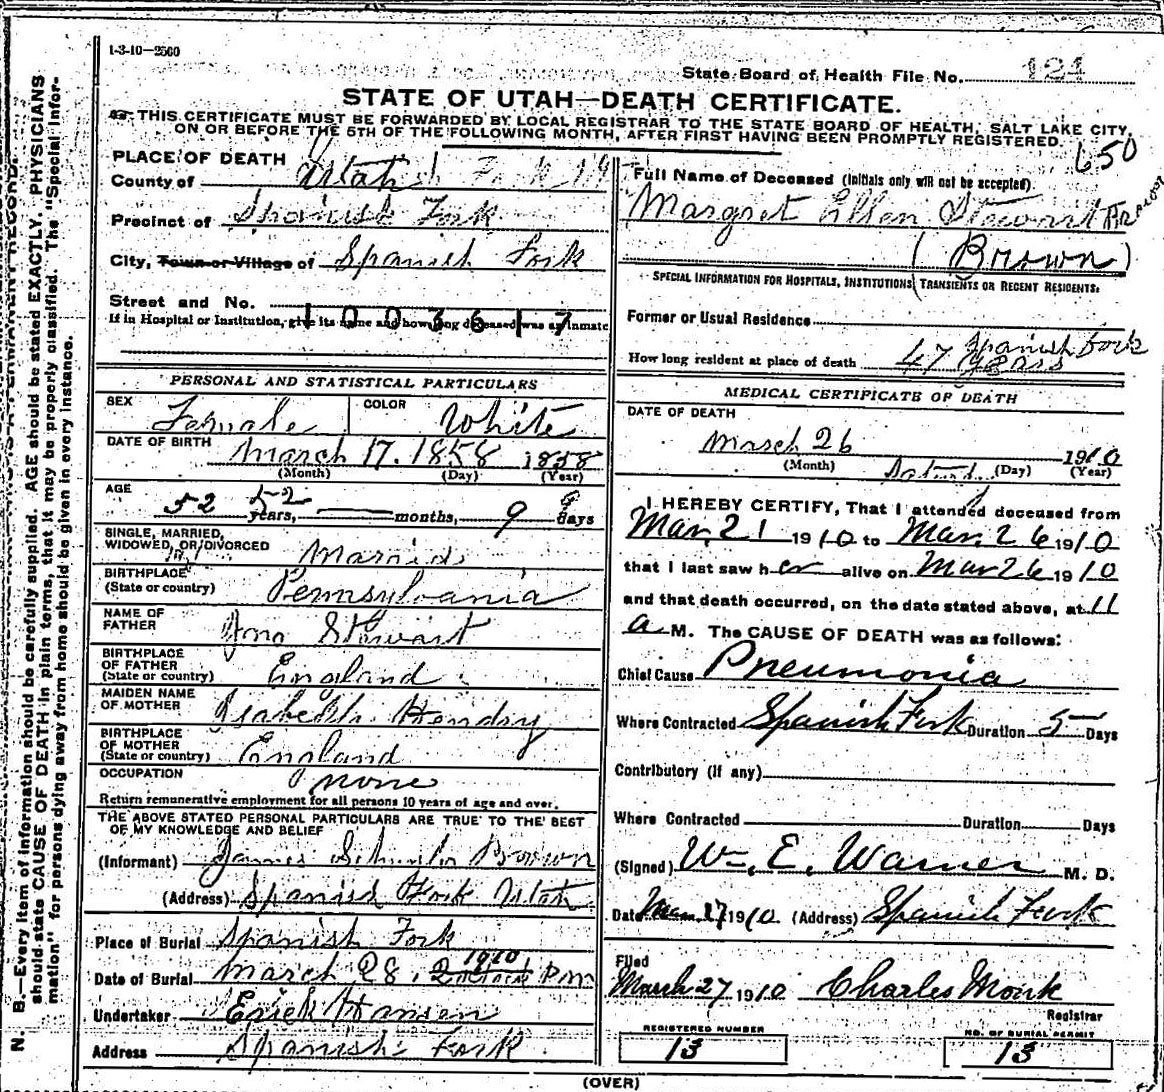 1-3-10—2500
State Board of Health File No. 121
STATE OF UTAH—DEATH CERTIFICATE.
THIS CERTIFICATE MUST BE FORWARDED BY LOCAL REGISTRAR TO THE STATE BOARD OF HEALTH, SALT LAKE CITY,
ON OR BEFORE THE 5TH OF THE FOLLOWING MONTH, AFTER FIRST HAVING BEEN PROMPTLY REGISTERED.
650
PLACE OF DEATH
County of Utah
Precinct of Spanish Fork
City, Town or Village of Spanish Fork
Street and No.
If in Hospital or Institution, give its name and how long deceased was an inmate
1003617
PERSONAL AND STATISTICAL PARTICULARS
SEX Female COLOR White
DATE OF BIRTH March 17. 1858 1858
(Month) (Day) (Year)
AGE 52 52 years, months, 9 9 days
SINGLE, MARRIED,
WIDOWED, OR DIVORCED Married
BIRTHPLACE
(State or country) Pennsylvania
NAME OF
FATHER Jno Stewart
BIRTHPLACE
OF FATHER
(State or country) England
MAIDEN NAME
OF MOTHER Isabella Hendry
BIRTHPLACE
OF MOTHER
(State or country) England
OCCUPATION none
Return remunerative employment for all persons 10 years of age and over.
THE ABOVE STATED PERSONAL PARTICULARS ARE TRUE TO THE BEST
OF MY KNOWLEDGE AND BELIEF
(Informant) James Brown
(Address) Spanish Fork Utah
Place of Burial Spanish Fork
Date of Burial March 28, 2 1910 P m
Undertaker Erick Hansen
Address Spanish Fork
Full Name of Deceased (Initials only will not be accepted).
Margret Ellen Stewart Brown
(Brown)
SPECIAL INFORMATION FOR HOSPITALS, INSTITUTIONS, TRANSIENTS OR RECENT RESIDENTS:
Former or Usual Residence
Spanish Fork
How long resident at place of death 47 years
MEDICAL CERTIFICATE OF DEATH
DATE OF DEATH
March 26 1910
(Month) (Day) (Year)
I HEREBY CERTIFY, That I attended deceased from
Mar. 21 1910 to Mar. 26 1910
that I last saw her alive on Mar 26 1910
and that death occurred, on the date stated above, at 11
a M. The CAUSE OF DEATH was as follows:
Chief Cause Pneumonia
Where Contracted Spanish Fork Duration 5 Days
Contributory (if any)
Where Contracted Duration Days
(Signed) Wm. E. Warner M. D.
Date Mar. 27 1910 (Address) Spanish Fork
Filed
March 27 1910 Charles Monk
Registrar
REGISTERED NUMBER
13
NO. OF BURIAL PERMIT
13
(OVER)
N. B.—Every item of information should be carefully supplied. AGE should be stated EXACTLY. PHYSICIANS
should state CAUSE OF DEATH in plain terms, that it may be properly classified. The "Special Infor-
mation" for persons dying away from home should be given in every instance.